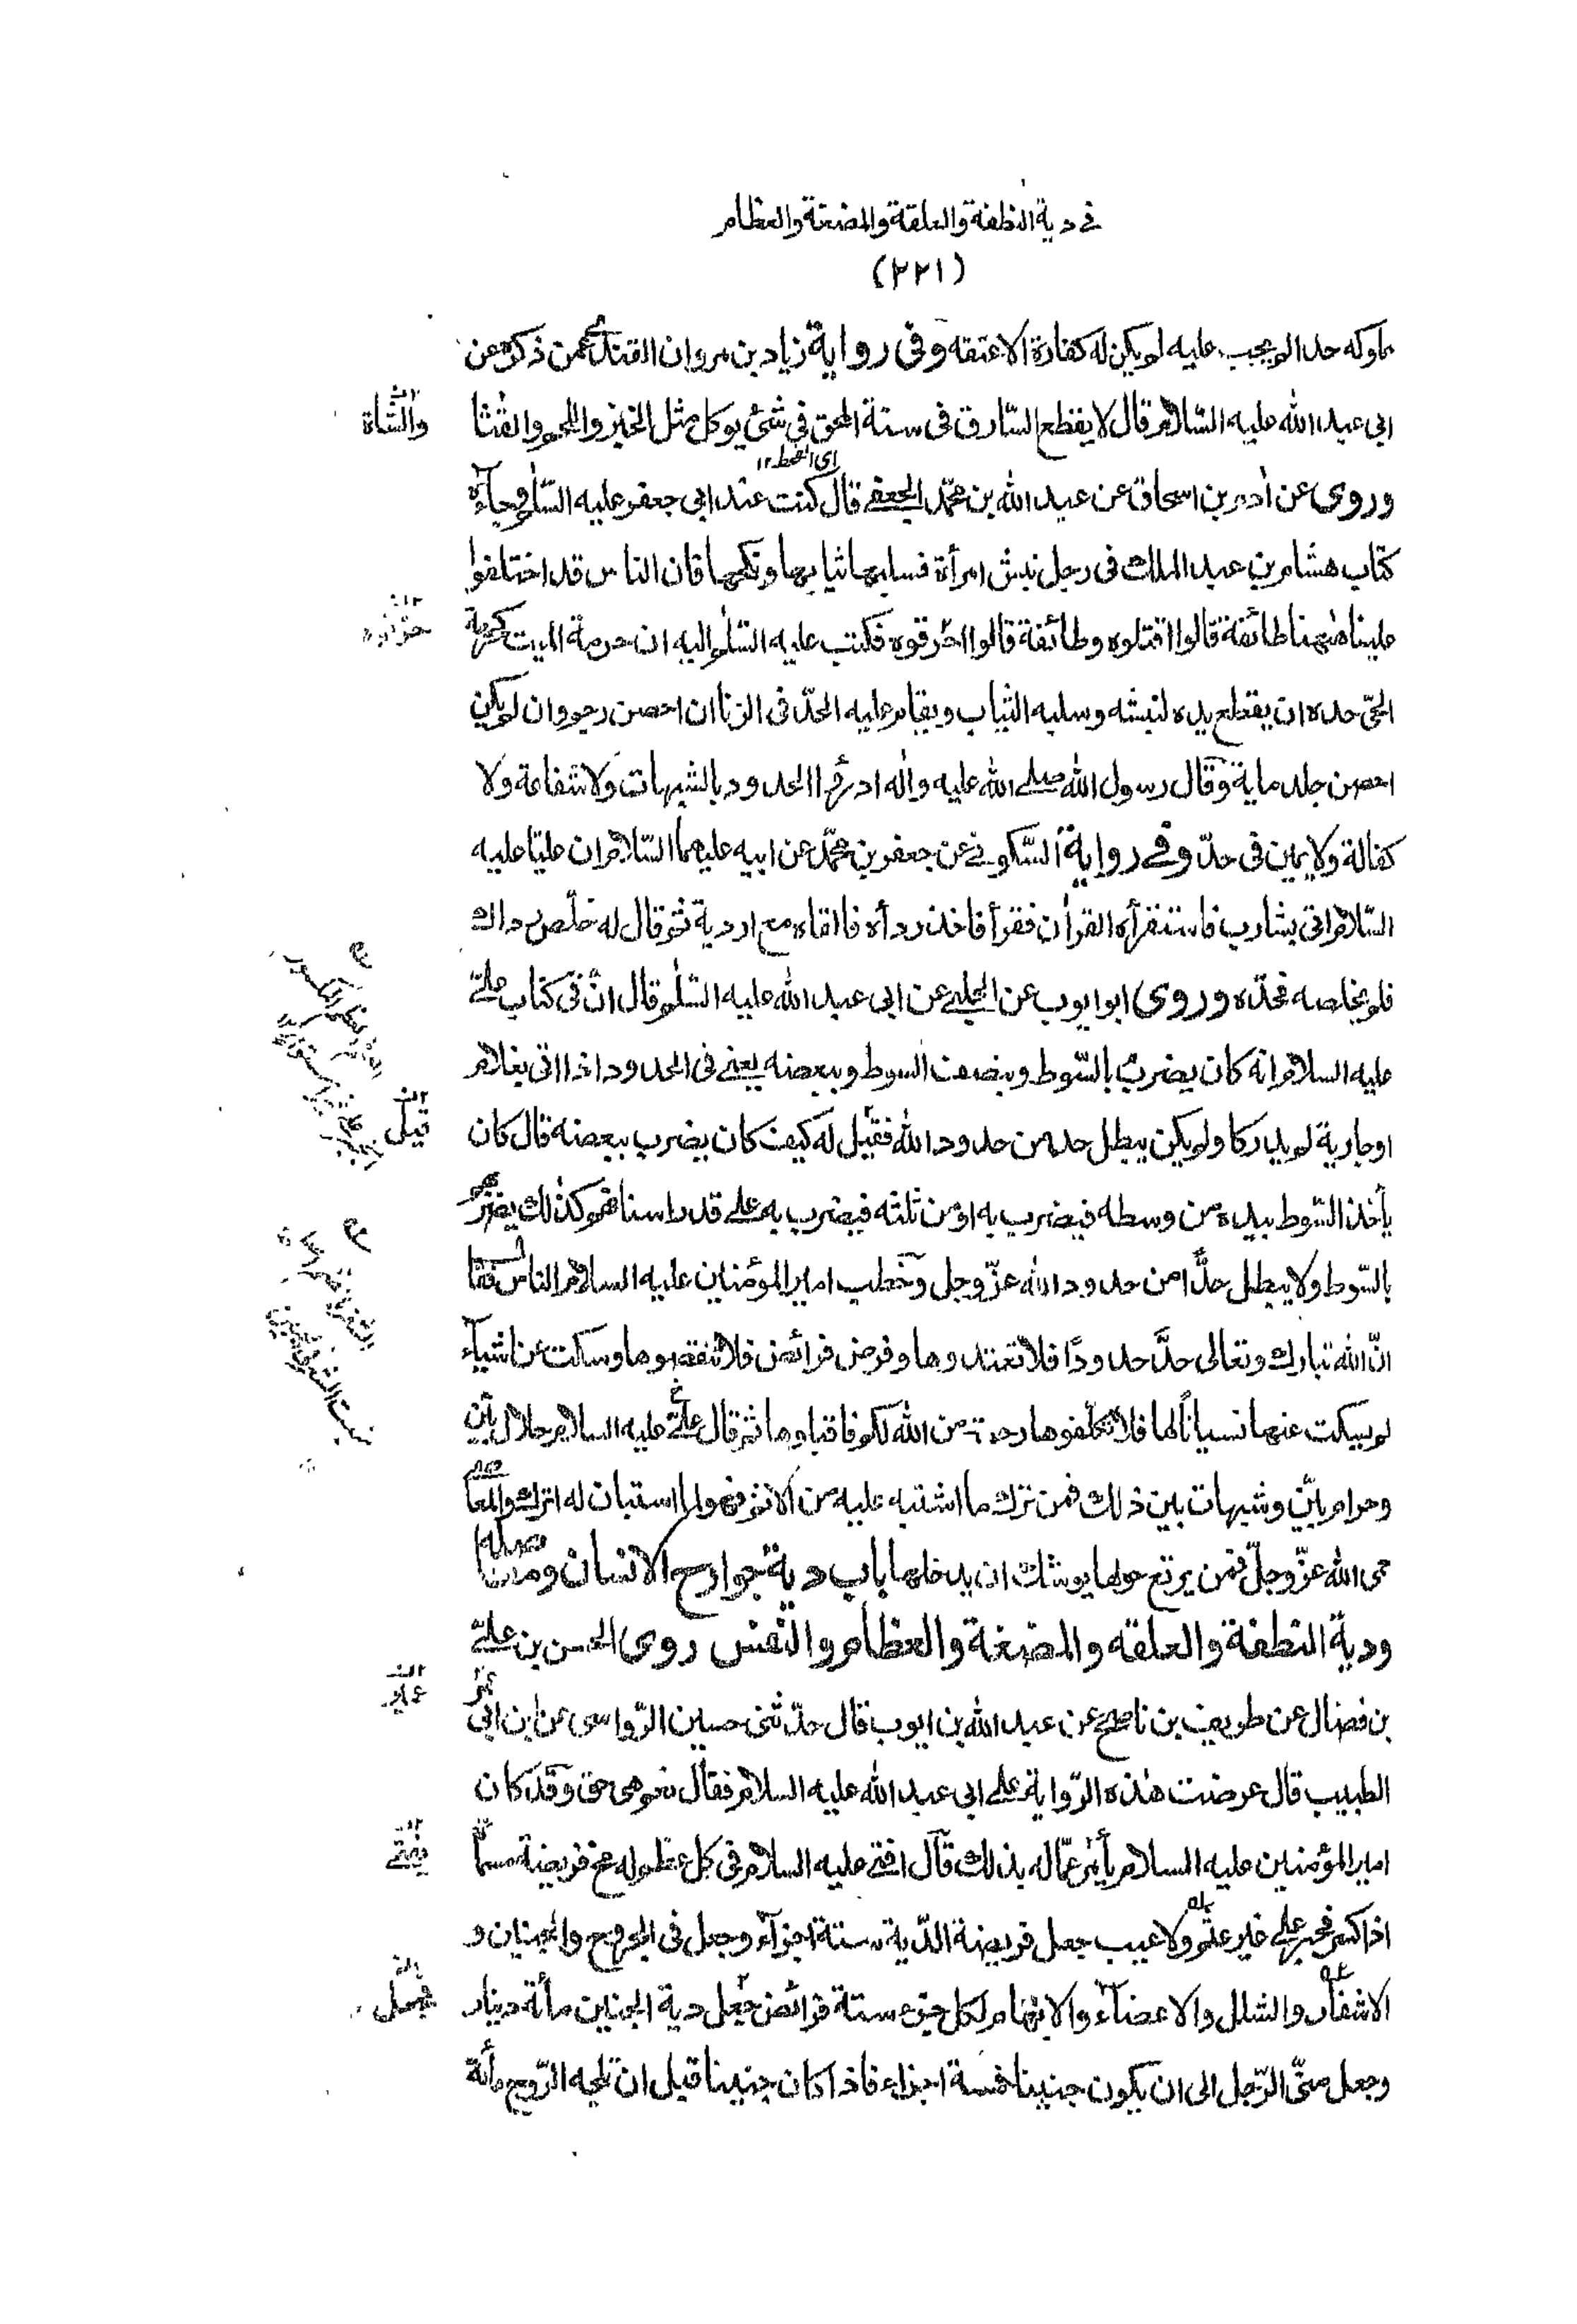 في دية النطفة والعلقة والمضغة والعظام
(٢٢١)
مملوكه حدا لم يجب عليه لم يكن له كفارة الا عتقه وفى رواية زياد بن مروان القندى عمن ذكره عن
ابى عبد الله عليه السّلام قال لا يقطع السّارق فى سنة المحق فى شئ يوكل مثل الخبز واللحم والقثا
والشاة
اى القحط ١٢
وروى عن ادم بن اسحاق عن عبد الله بن محمّد الجعفے قال كنت عند ابى جعفر عليه السّلم وجاءه
كتاب هشام بن عبد الملك فى رجل نبش امرأة فسلبها ثيابها ونكحها فان الناس قد اختلفوا
علينا ههنا طائفة قالوا اقتلوه وطائفة قالوا احرقوه فكتب عليه السّلم اليه ان حرمة الميت كحرمة
حرّقوه
الحىّ حده ان يقطع يده لنبشه وسلبه الثياب ويقام عليه الحدّ فى الزنا ان احصن رجم وان لم يكن
احصن جلد ماية وقال رسول الله صلے الله عليه واله ادرؤا الحدود بالشبهات ولا شفاعة ولا
كفالة ولا يمين فى حدّ وفے رواية السّكونے عن جعفر بن محمّد عن ابيه عليهما السّلام ان عليّا عليه
السّلام اتى بشارب فاستقرأه القران فقرأ فاخذ رداءه فالقاه مع اردية ثم قال له خلّص رداك
فلم يخلصه فحدّه وروى ابو ايوب عن الحلبے عن ابى عبد الله عليه السّلم قال انّ فى كتاب علےّ
عليه السلام انه كان يضرب بالسّوط وبنصف السوط وببعضه يعنے فى الحدود اذا اتى بغلام
او جارية لم يدركا ولم يكن يبطل حدا من حدود الله فقيل له كيف كان يضرب ببعضه قال كان
قيل
يأخذ السّوط بيده من وسطه فيضرب به او من ثلثه فيضرب به علے قدر اسنانهم وكذلك يضربهم
بالسّوط ولا يبطل حدًّا من حدود الله عزّ وجل وخطب امير المؤمنين عليه السلام الناس فقال
انّ الله تبارك وتعالى حدّ حدودًا فلا تعتدوها وفرض فرائض فلا تنقصوها وسكت عن اشياء
لم يسكت عنها نسيانًا لها فلا تكلفوها رحمة من الله لكم فاقبلوها ثم قال علےّ عليه السلام حلال بيّن
وحرام بيّن وشبهات بين ذلك فمن ترك ما اشتبه عليه من الاثم فهو لما استبان له اترك والمعاصى
حمى الله عزّ وجلّ فمن يرتع حولها يوشك ان يدخلها باب دية جوارح الانسان ومفاصله
ودية النطفة والعلقه والمضغة والعظام والنفس روى الحسن بن علےّ
بن فضال عن ظريف بن ناصح عن عبد الله بن ايوب قال حدّثنى حسين الرّواسى عن ابن ابى
الطبيب قال عرضت هذه الرّواية علے ابى عبد الله عليه السلام فقال نعم هى حق وقد كان
امير المؤمنين عليه السلام يأمر عمّاله بذلك قال افتے عليه السلام فى كل عظم له مخ فريضة مسماة
يفتے
اذا كسر فجبر علے غير عثم ولا عيب جعل فريضة الدّية ستة اجزاء وجعل فى الجروح والجنين و
الاشفار والشلل والاعضاء والابهام لكل جزء ستة فرائض جعل دية الجنين مائة دينار
فجعل
وجعل منىّ الرّجل الى ان يكون جنينا خمسة اجزاء فاذا كان جنينا قبل ان تلجه الرّوح مائة